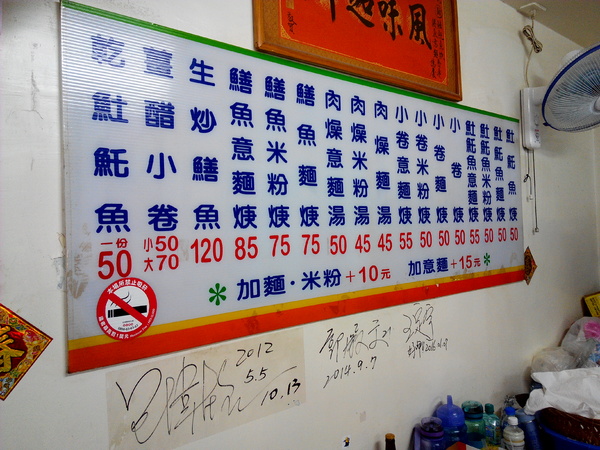 風味
乾𩵚魠魚 一份 50
薑醋小卷 小50 大70
生炒鱔魚 120
鱔魚意麵焿 85
鱔魚米粉焿 75
鱔魚麵焿 75
肉燥意麵湯 50
肉燥米粉湯 45
肉燥麵湯 45
小卷意麵焿 55
小卷米粉焿 50
小卷麵焿 50
小卷焿 50
𩵚魠魚意麵焿 55
𩵚魠魚米粉焿 50
𩵚魠魚麵焿 50
𩵚魠魚焿 50
✻加麵·米粉+10元 加意麵+15元✻
本場所禁止吸菸
春
2012
5.5
10.13
2014.9.7